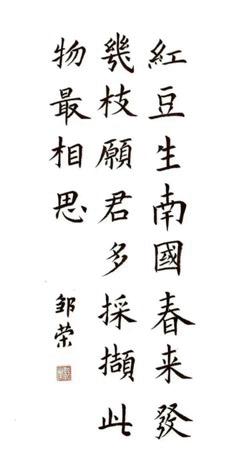 紅豆生南國春来發
幾枝願君多採擷此
物最相思
邹荣